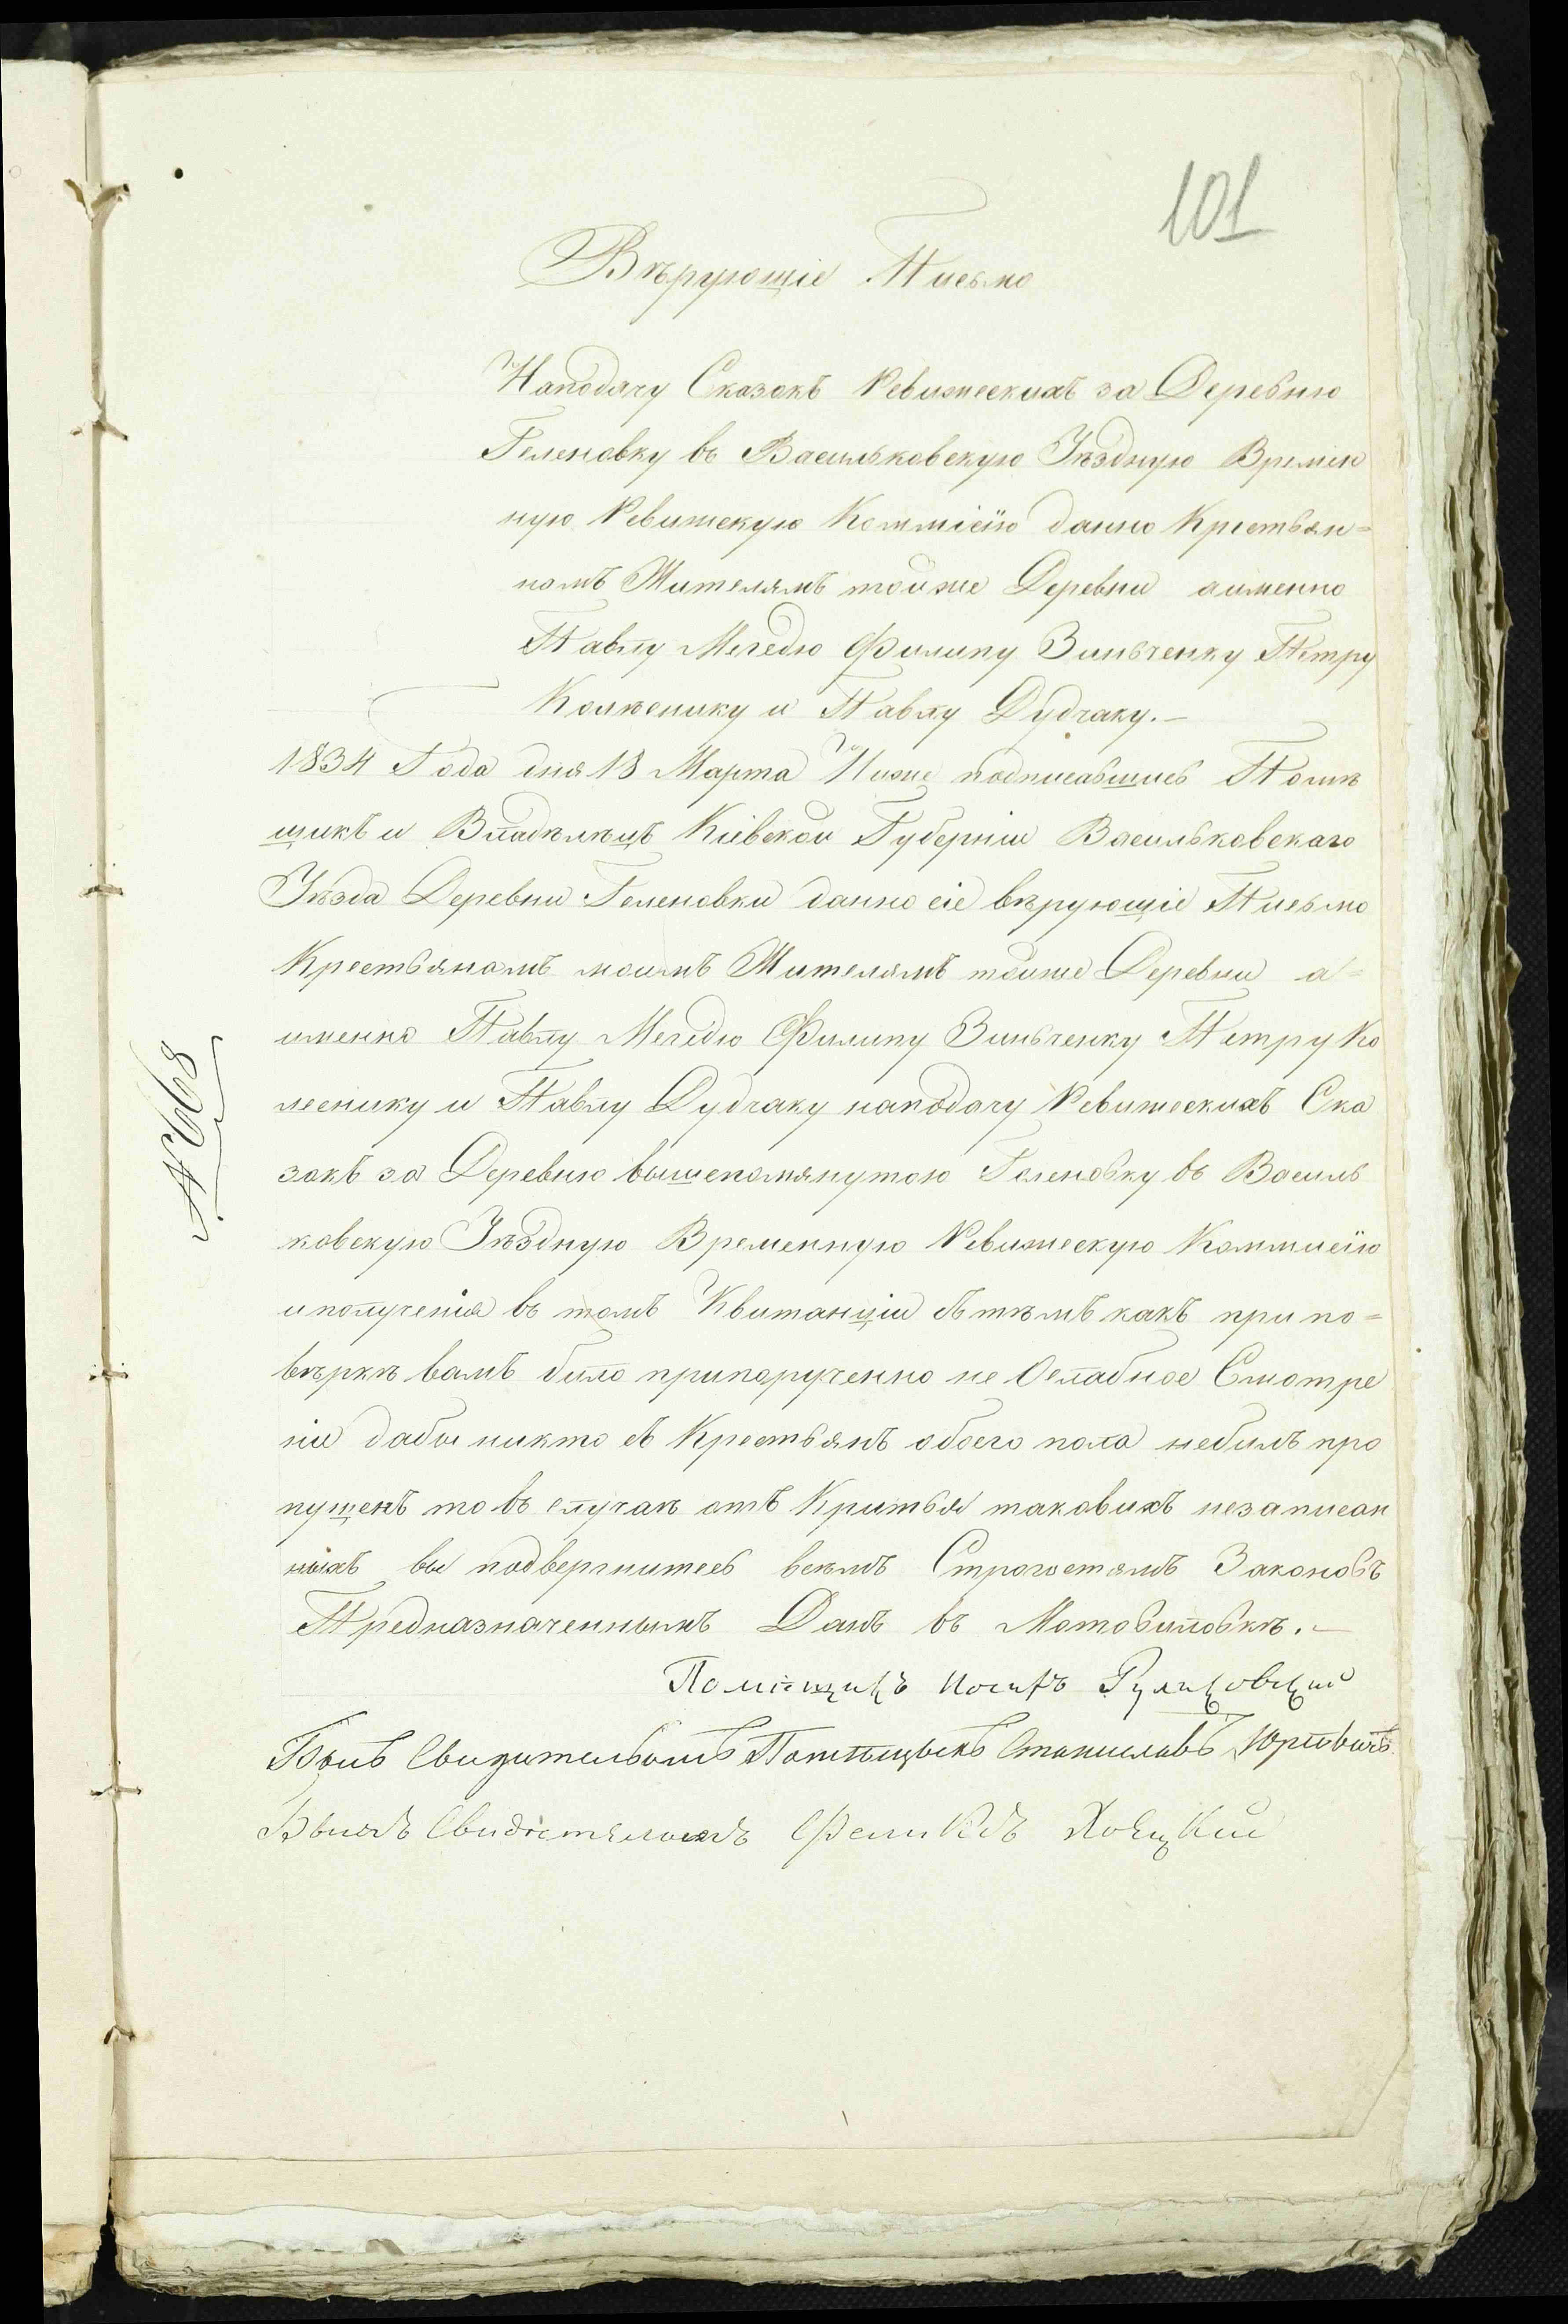 101
Вѣрующіе Письмо
Наподачу Сказокъ Ревижескихъ за Деревню
Геленовку въ Васильковскую Уѣздную Времен
ную Ревижскую Коммісїю данно Крестьян=
номъ Жителямъ тойже Деревни аименно
Павлу Мегедю Филипу Зинченку Петру
Колѣснику и Павлу Дудчаку.—
1834 Года дня 13 Марта Ниже подписавшись Помѣ
щикъ и Владѣлѣцъ Кіевской Губерніи Васильковскаго
Уѣзда Деревни Геленовки данно сіе вѣрующіе Письмо
Крестьяномъ моимъ Жителямъ тойже Деревни а=
именно Павлу Мегедю Филипу Зинченку Петру Ко
леснику и Павлу Дудчаку наподачу Ревижескихъ Ска
зокъ за Деревню вышепомянутою Геленовку въ Василь
ковскую Уѣздную Временную Ревижескую Коммисїю
и полученія въ томъ Квитанціи съ тѣмъ какъ при по=
вѣркѣ вамъ било припорученно не Ослабное Смотре
ніе дабы никто съ Крестьянъ обоего пола небилъ про
пущенъ то въ случаѣ отъ Критья таковихъ незаписан
ныхъ вы подвергнитесь всѣмъ Строгостямъ Законовъ
Предназначеннымъ Данъ въ Мотовиловкѣ.—
Поміщикъ Иосифъ Руликовскій
Былъ Свидителъомъ Помѣщыкъ Станиславъ
Былъ Свидѣтелемъ Феликсъ
№ 668